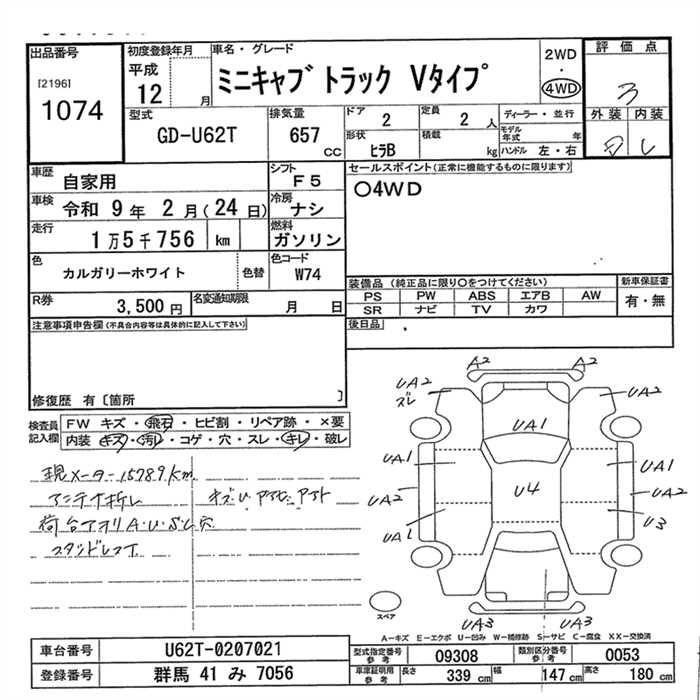 出品番号
[2196]
1074
初度登録年月
平成
12 月
車名・グレード
ミニキャブ トラック Vタイプ
2WD
・
4WD
評価点
3
外装 内装
型式
GD-U62T
排気量
657
CC
ドア
2
定員
2 人
形状
ヒラB
積載
kg
ディーラー・並行
モデル年式 年
ハンドル 左・右
車歴
自家用
シフト
F5
車検
令和 9年 2月(24日)
冷房
ナシ
走行
1万5千756 km
燃料
ガソリン
色
カルガリーホワイト
色替
色コード
W74
R券
3,500円
名変通知期限
月 日
セールスポイント(正常に機能するものに限ります)
○4WD
装備品(純正品に限り○をつけてください)
PS PW ABS エアB AW
SR ナビ TV カワ
新車保証書
有・無
後日品
注意事項申告欄(不具合内容等は具体的に記入して下さい)
修復歴 有〔箇所 〕
検査員記入欄
FW キズ・飛石・ヒビ割・リペア跡・×要
内装 キズ・汚レ・コゲ・穴・スレ・キレ・破レ
現メーター15789km
アンテナ折レ
荷台アオリA・U・S・L穴
A2
A2
UA2
ズレ
UA2
UA1
UA1
UA1
UA2
U4
UA2
UA1
U3
UA3
UA3
スペア
A-キズ E-エクボ U-凹み W-補修跡 S-サビ C-腐食 XX-交換済
車台番号
U62T-0207021
登録番号
群馬 41 み 7056
型式指定番号
参考
09308
類別区分番号
参考
0053
車庫証明用
参考
長さ
339 cm
幅
147 cm
高さ
180 cm